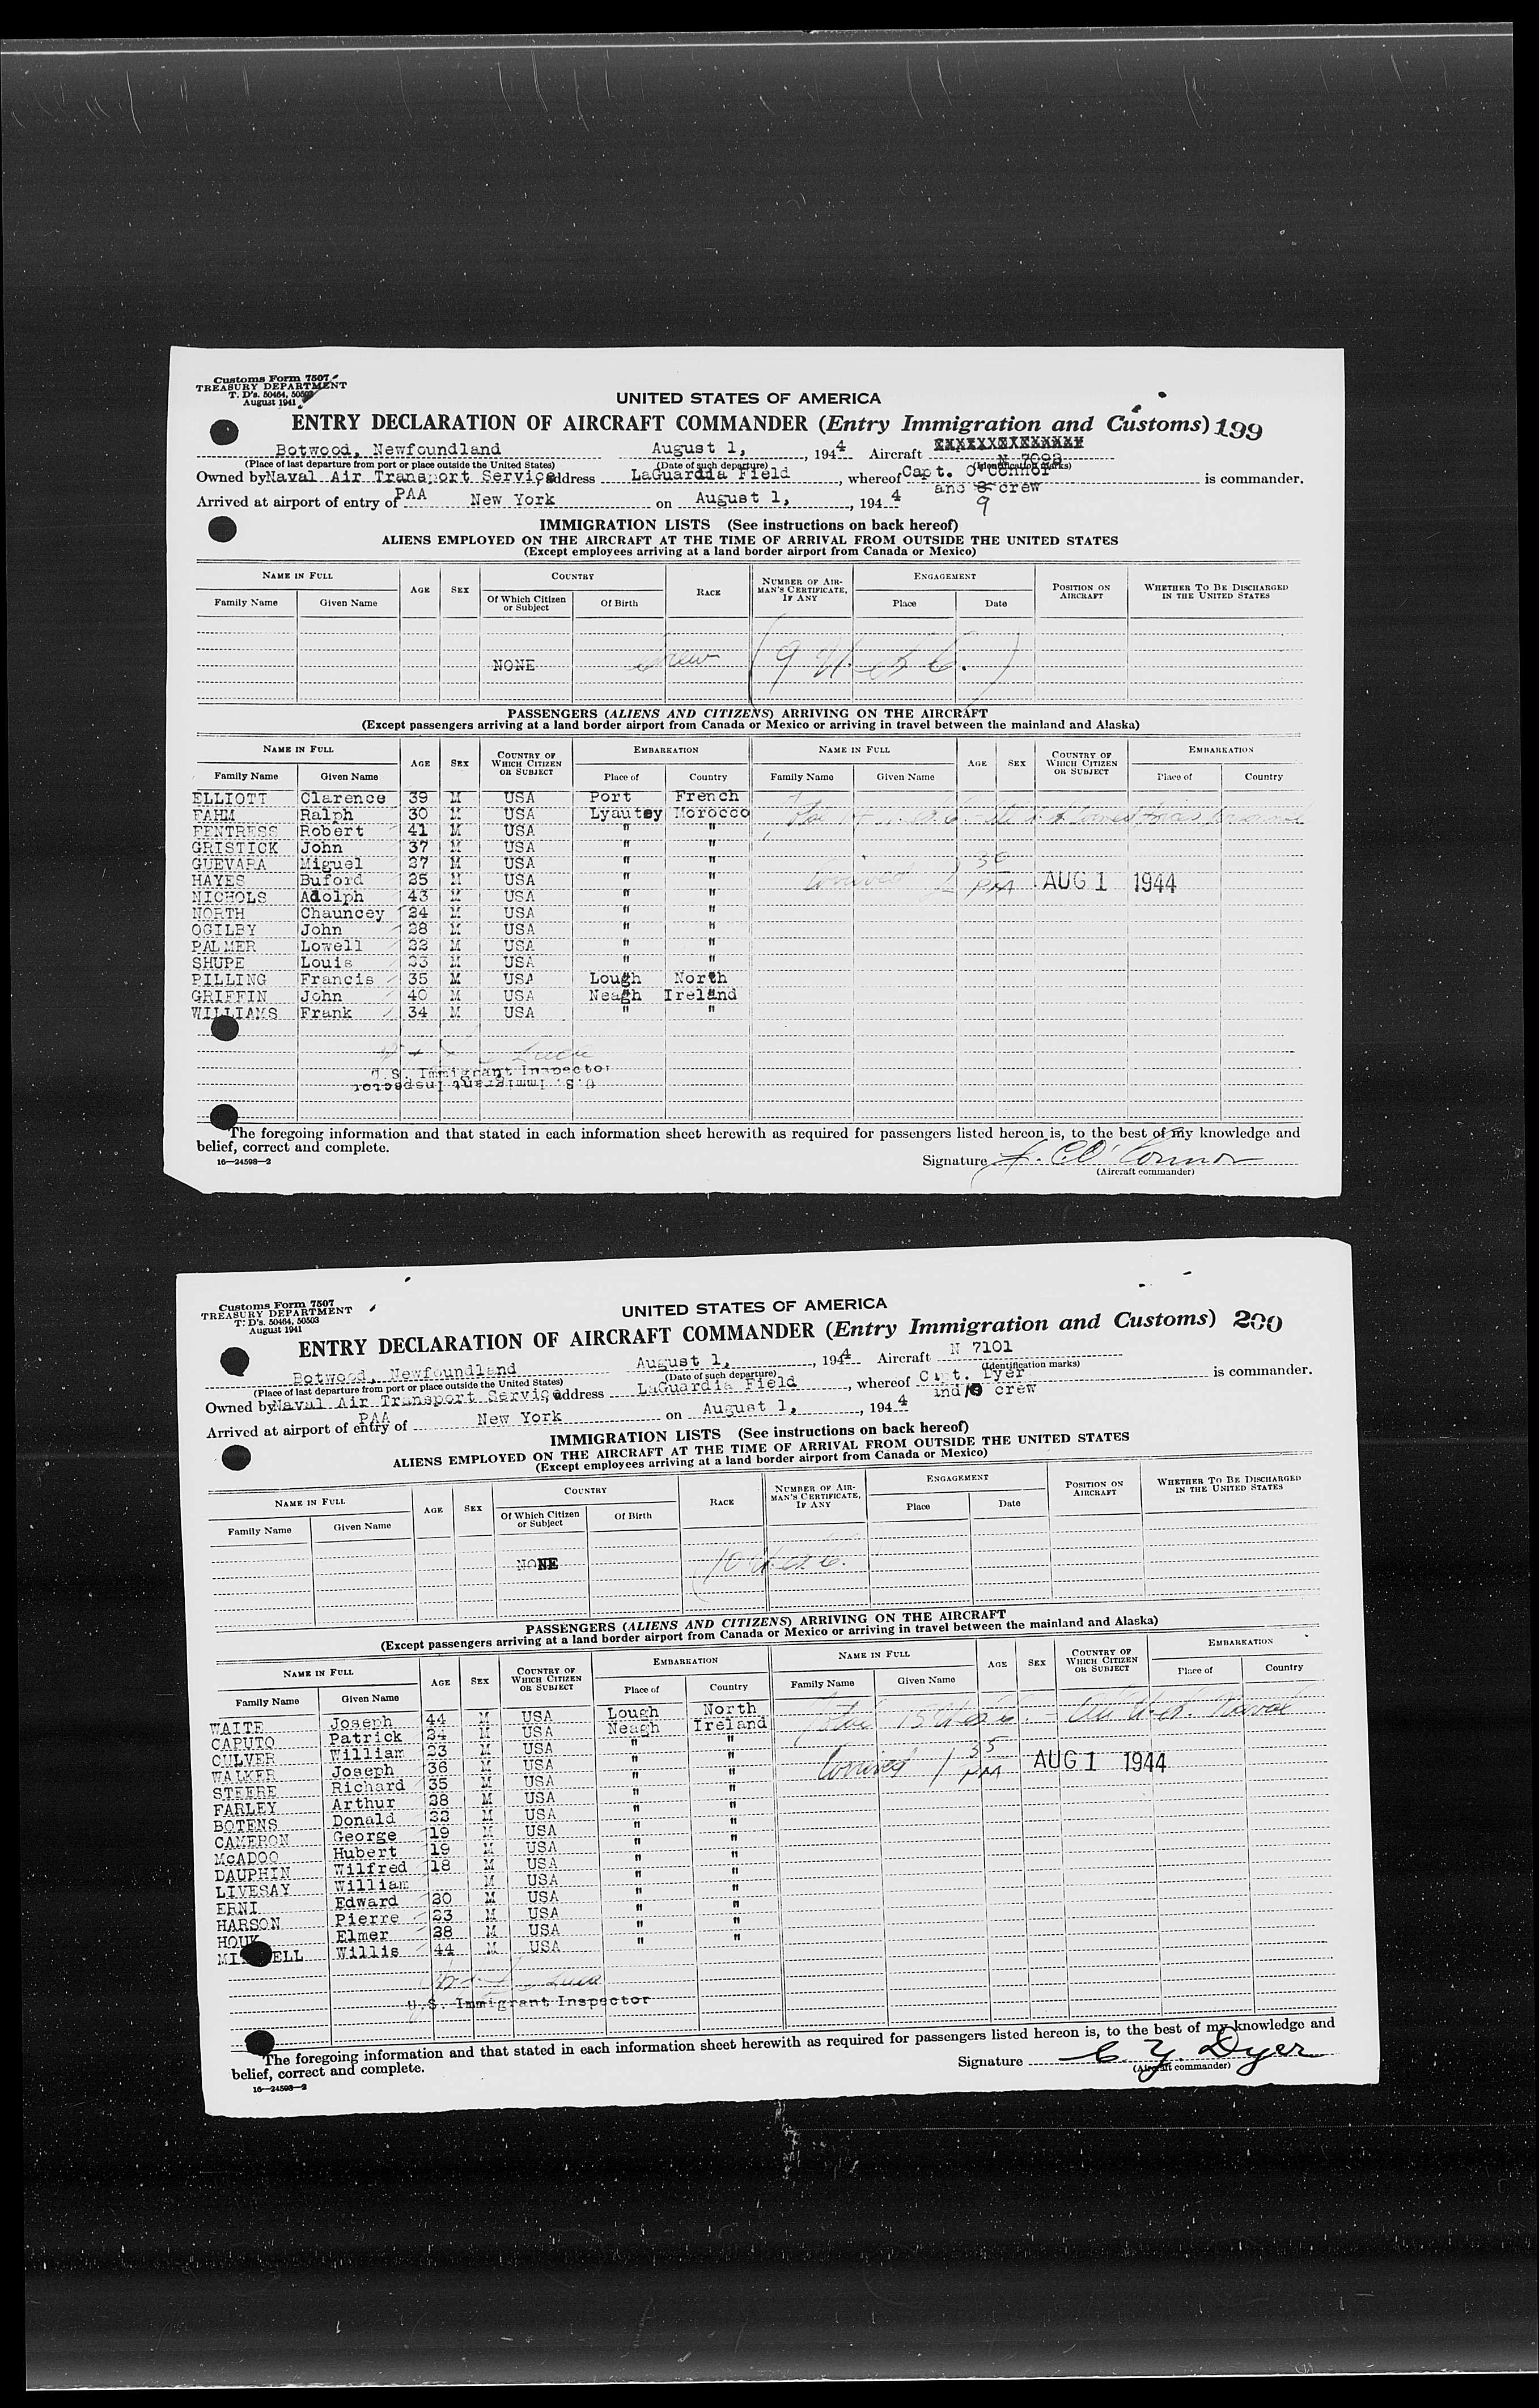 Customs Form 7507
TREASURY DEPARTMENT
T. D's. 50464, 50503
August 1941
UNITED STATES OF AMERICA
ENTRY DECLARATION OF AIRCRAFT COMMANDER (Entry Immigration and Customs) 199
Botwood, Newfoundland August 1, , 1944 Aircraft N 7098
(Place of last departure from port or place outside the United States) (Date of such departure) (Identification marks)
Owned by Naval Air Transport Service address LaGuardia Field , whereof Capt. O'Connor is commander.
and 8 crew
9
PAA
Arrived at airport of entry of New York on August 1, , 1944
IMMIGRATION LISTS (See instructions on back hereof)
ALIENS EMPLOYED ON THE AIRCRAFT AT THE TIME OF ARRIVAL FROM OUTSIDE THE UNITED STATES
(Except employees arriving at a land border airport from Canada or Mexico)
NAME IN FULL AGE SEX COUNTRY RACE NUMBER OF AIRMAN'S CERTIFICATE, IF ANY ENGAGEMENT POSITION ON AIRCRAFT WHETHER TO BE DISCHARGED IN THE UNITED STATES
Family Name Given Name Of Which Citizen or Subject Of Birth Place Date
NONE Crew (9 U.S.C.)
PASSENGERS (ALIENS AND CITIZENS) ARRIVING ON THE AIRCRAFT
(Except passengers arriving at a land border airport from Canada or Mexico or arriving in travel between the mainland and Alaska)
NAME IN FULL AGE SEX COUNTRY OF WHICH CITIZEN OR SUBJECT EMBARKATION NAME IN FULL AGE SEX COUNTRY OF WHICH CITIZEN OR SUBJECT EMBARKATION
Family Name Given Name Place of Country Family Name Given Name Place of Country
ELLIOTT Clarence 39 M USA Port French
FAHM Ralph 30 M USA Lyautey Morocco
FENTRESS Robert 41 M USA " "
GRISTICK John 37 M USA " "
GUEVARA Miguel 27 M USA " "
HAYES Buford 25 M USA " " Arrived 1 30 PM AUG 1 1944
NICHOLS Adolph 43 M USA " "
NORTH Chauncey 24 M USA " "
OGILBY John 28 M USA " "
PALMER Lowell 22 M USA " "
SHUPE Louis 23 M USA " "
PILLING Francis 35 M USA Lough North
GRIFFIN John 40 M USA Neagh Ireland
WILLIAMS Frank 34 M USA " "
U.S. Immigrant Inspector
U.S. Immigrant Inspector
The foregoing information and that stated in each information sheet herewith as required for passengers listed hereon is, to the best of my knowledge and
belief, correct and complete.
16—24598—2
Signature O'Connor
(Aircraft commander)
Customs Form 7507
TREASURY DEPARTMENT
T. D's. 50464, 50503
August 1941
UNITED STATES OF AMERICA
ENTRY DECLARATION OF AIRCRAFT COMMANDER (Entry Immigration and Customs) 200
Botwood, Newfoundland August 1, , 1944 Aircraft N 7101
(Place of last departure from port or place outside the United States) (Date of such departure) (Identification marks)
Owned by Naval Air Transport Service address LaGuardia Field , whereof Capt. Dyer is commander.
and 10 crew
PAA
Arrived at airport of entry of New York on August 1, , 1944
IMMIGRATION LISTS (See instructions on back hereof)
ALIENS EMPLOYED ON THE AIRCRAFT AT THE TIME OF ARRIVAL FROM OUTSIDE THE UNITED STATES
(Except employees arriving at a land border airport from Canada or Mexico)
NAME IN FULL AGE SEX COUNTRY RACE NUMBER OF AIRMAN'S CERTIFICATE, IF ANY ENGAGEMENT POSITION ON AIRCRAFT WHETHER TO BE DISCHARGED IN THE UNITED STATES
Family Name Given Name Of Which Citizen or Subject Of Birth Place Date
NONE (10 U.S.C.
PASSENGERS (ALIENS AND CITIZENS) ARRIVING ON THE AIRCRAFT
(Except passengers arriving at a land border airport from Canada or Mexico or arriving in travel between the mainland and Alaska)
NAME IN FULL AGE SEX COUNTRY OF WHICH CITIZEN OR SUBJECT EMBARKATION NAME IN FULL AGE SEX COUNTRY OF WHICH CITIZEN OR SUBJECT EMBARKATION
Family Name Given Name Place of Country Family Name Given Name Place of Country
WAITE Joseph 44 M USA Lough North
CAPUTO Patrick 34 M USA Neagh Ireland
CULVER William 23 M USA " "
WALKER Joseph 36 M USA " " Arrived 1 35 PM AUG 1 1944
STEERE Richard 35 M USA " "
FARLEY Arthur 28 M USA " "
BOTENS Donald 22 M USA " "
CAMERON George 19 M USA " "
McADOO Hubert 19 M USA " "
DAUPHIN Wilfred 18 M USA " "
LIVESAY William M USA " "
ERNI Edward 20 M USA " "
HARSON Pierre 23 M USA " "
HOUK Elmer 28 M USA " "
Willis 44 M USA " "
U.S. Immigrant Inspector
The foregoing information and that stated in each information sheet herewith as required for passengers listed hereon is, to the best of my knowledge and
belief, correct and complete.
16—24598—2
Signature C. Y. Dyer
(Aircraft commander)